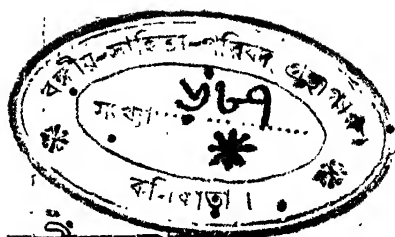 বঙ্গীয়-সাহিত্য-পরিষদ্ গ্রন্থাগার
সংখ্যা..........৬৮৭..........
কলিকাতা।